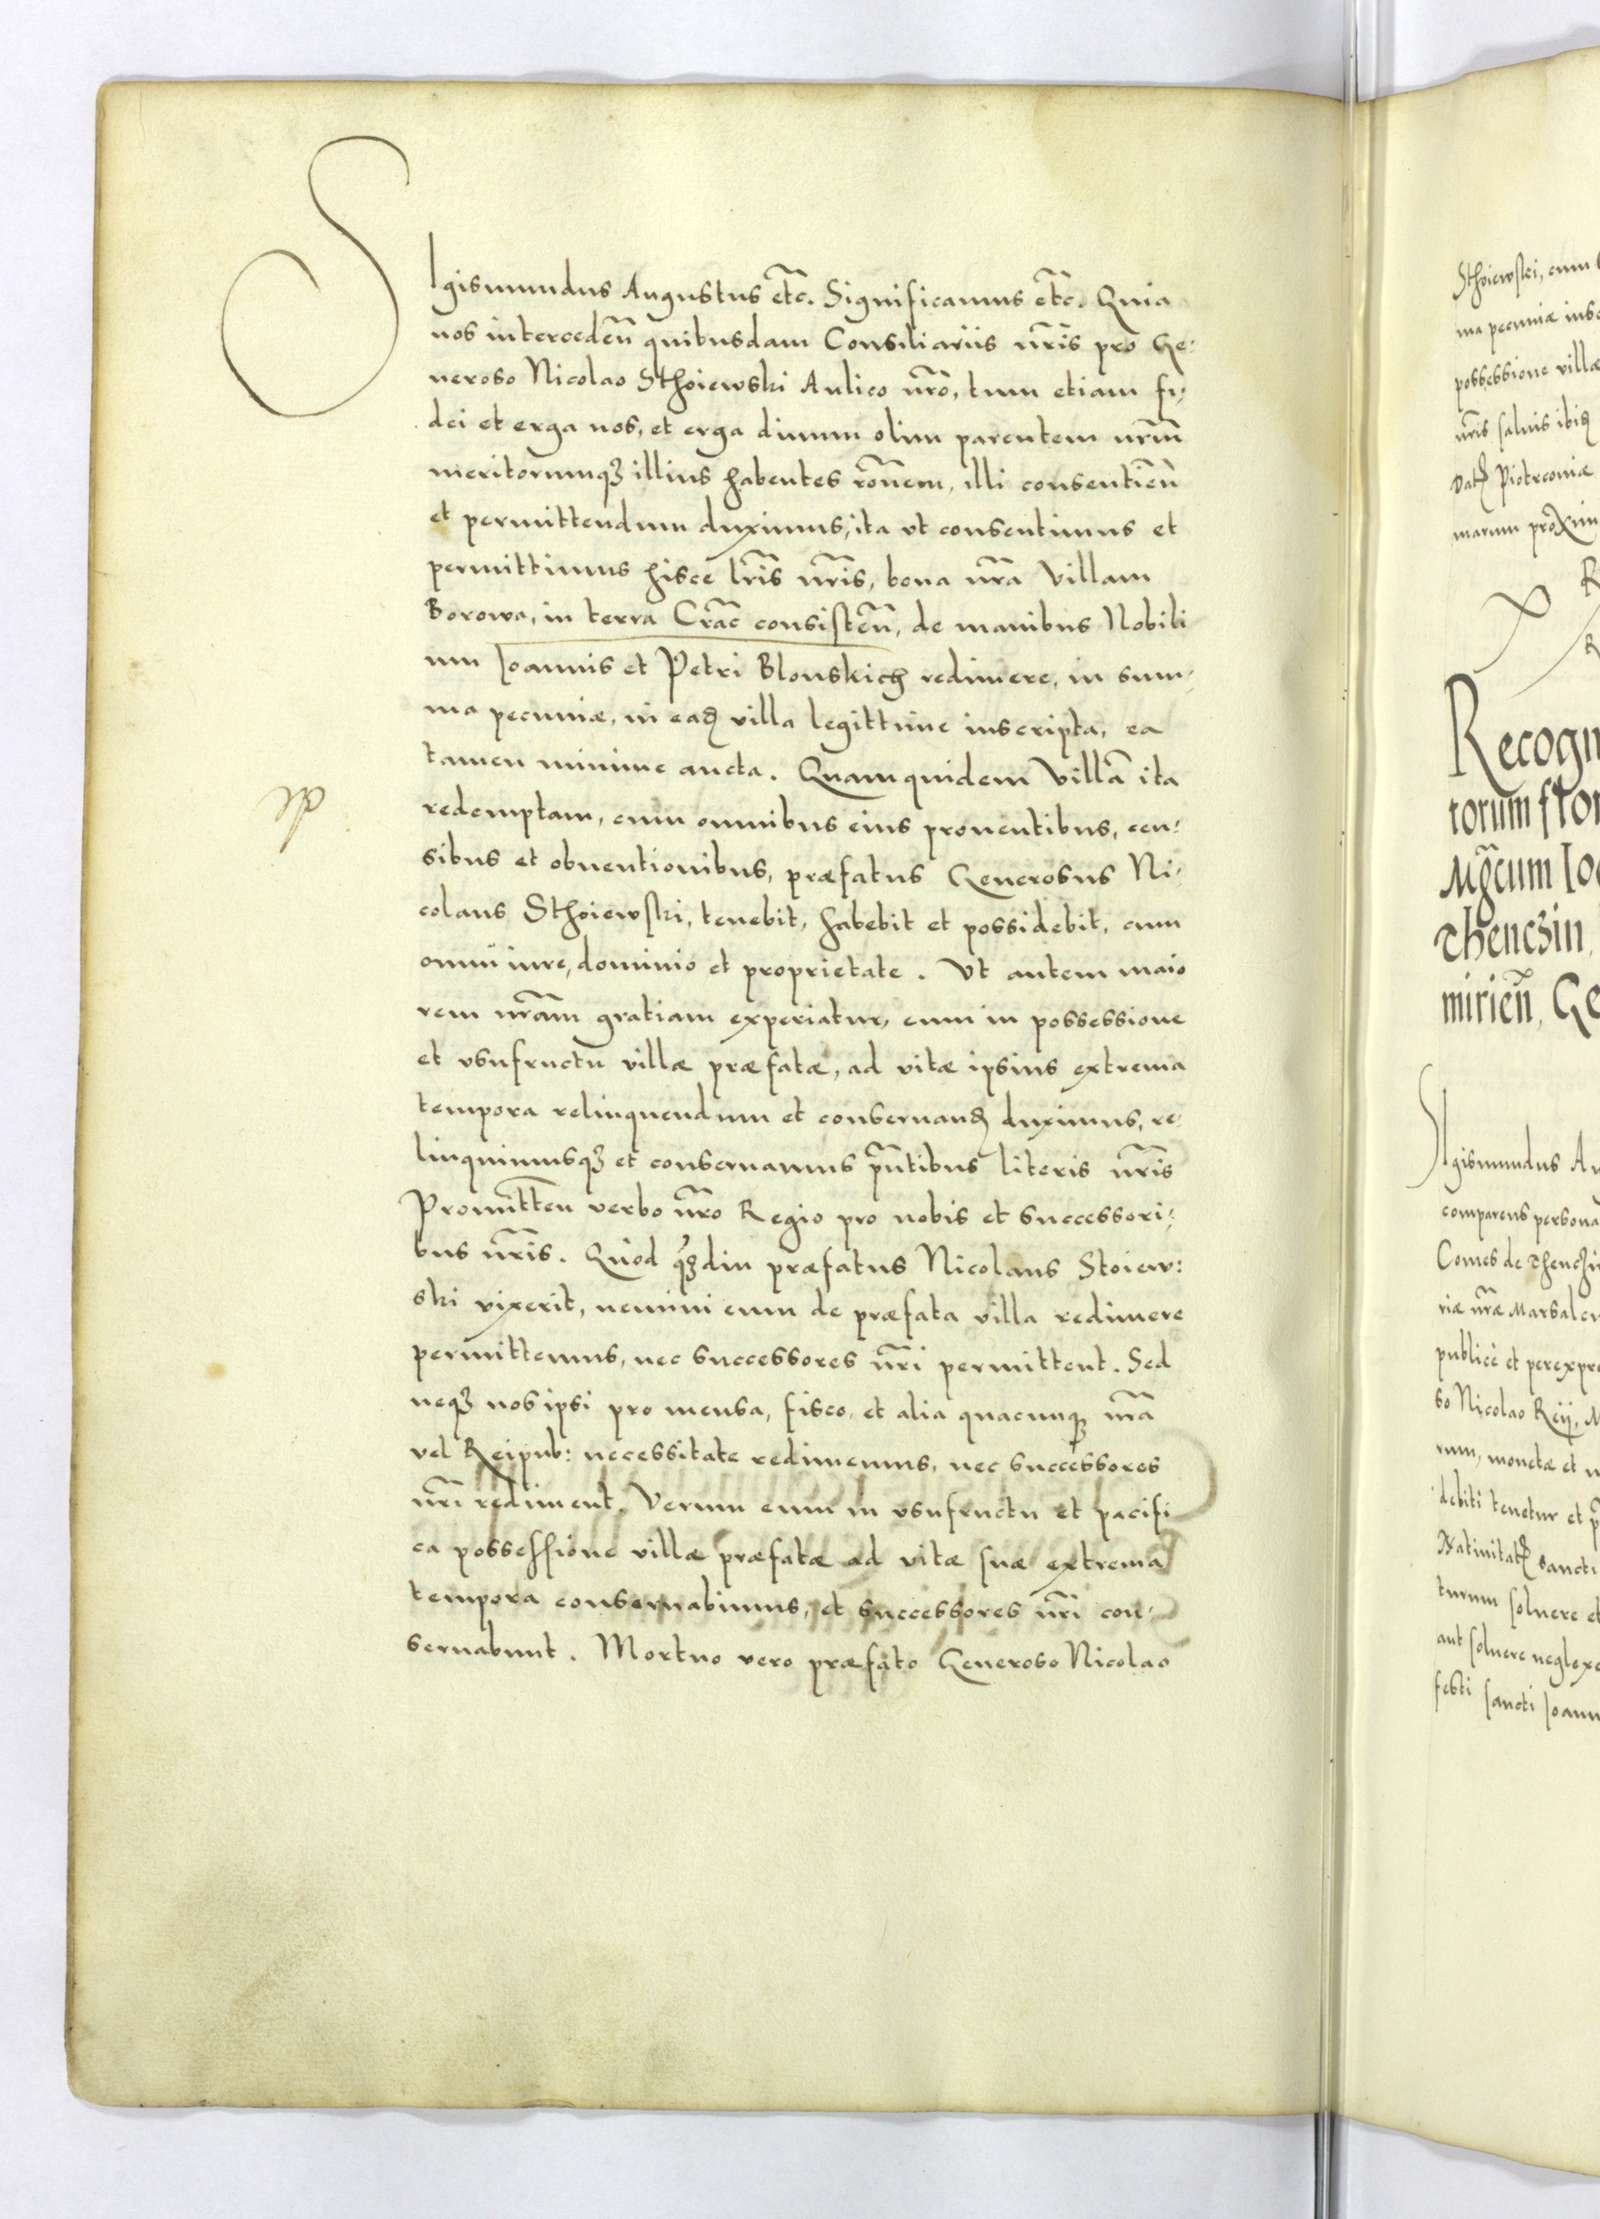 SIgismundus Augustus etc̃. Significamus etc̃. Quia
nos intercedeñ quibusdam Consiliariis nr̃is pro Ge⹀
neroso Nicolao Sthoiewski Aulico nr̃o, tum etiam fi⹀
dei et erga nos, et erga diuum olim parentem nr̃m
meritorumqꝫ illius habentes rõnem, illi consentieñ
et permittendum duximus, ita vt consentimus et
permittimus hisce lr̃is nr̃is, bona nr̃a Villam
Borowa, in terra Crac̃ consisteñ, de manibus Nobili
um Ioannis et Petri Blonskich redimere, in sum⹀
ma pecuniæ, in eaɖ villa legittime inscripta, ea
tamen minime aucta. Quam quidem Villã ita
redemptam, cum omnibus eius prouentibus, cen⹀
sibus et obuentionibus, præfatus Generosus Ni⹀
colaus Sthoiewski, tenebit, habebit et possidebit, cum
omni iure, dominio et proprietate. Vt autem maio
rem nr̃am gratiam experiatur, eum in possessione
et vsufructu villæ præfatæ, ad vitæ ipsius extrema
tempora relinquendum et conseruanɖ duximus, re⹀
linquimusqꝫ et conseruamus pñtibus literis nr̃is
Promitteñ verbo nr̃o Regio pro nobis et successori⹀
bus nr̃is. Quod qꝫdiu præfatus Nicolaus Stoiew:
ski vixerit, nemini eum de præfata villa redimere
permittemus, nec successores nr̃i permittent. Sed
neqꝫ nos ipsi pro mensa, fisco, et alia quacunqꝫ nr̃a
vel Reipub: necessitate redimemus, nec successores
nr̃i rediment. Verum eum in vsufructu et pacifi
ca possessione villæ præfatæ ad vitæ suæ extrema
tempora conseruabimus, et successores nr̃i con⹀
seruabunt. Mortuo vero præfato Generoso Nicolao
Sthoiewski, cum
ma pecuniæ
possessione villæ
nr̃is saluis ibiɖ
Piotrcouiæ
marum proxim
Recogn
torum flor
Mg̃cum Io
Thenczin,
mirieñ, Ge
SIgismundus Au
comparens persona
Comes de Thenczi
riæ nr̃æ Marsalc
publice et perexpre
so Nicolao Reij, M
rum, monetæ et
debiti tenetur et
Natiuitatꝭ Sancti
turum soluere et
aut soluere neglexe
festi sancti Ioann